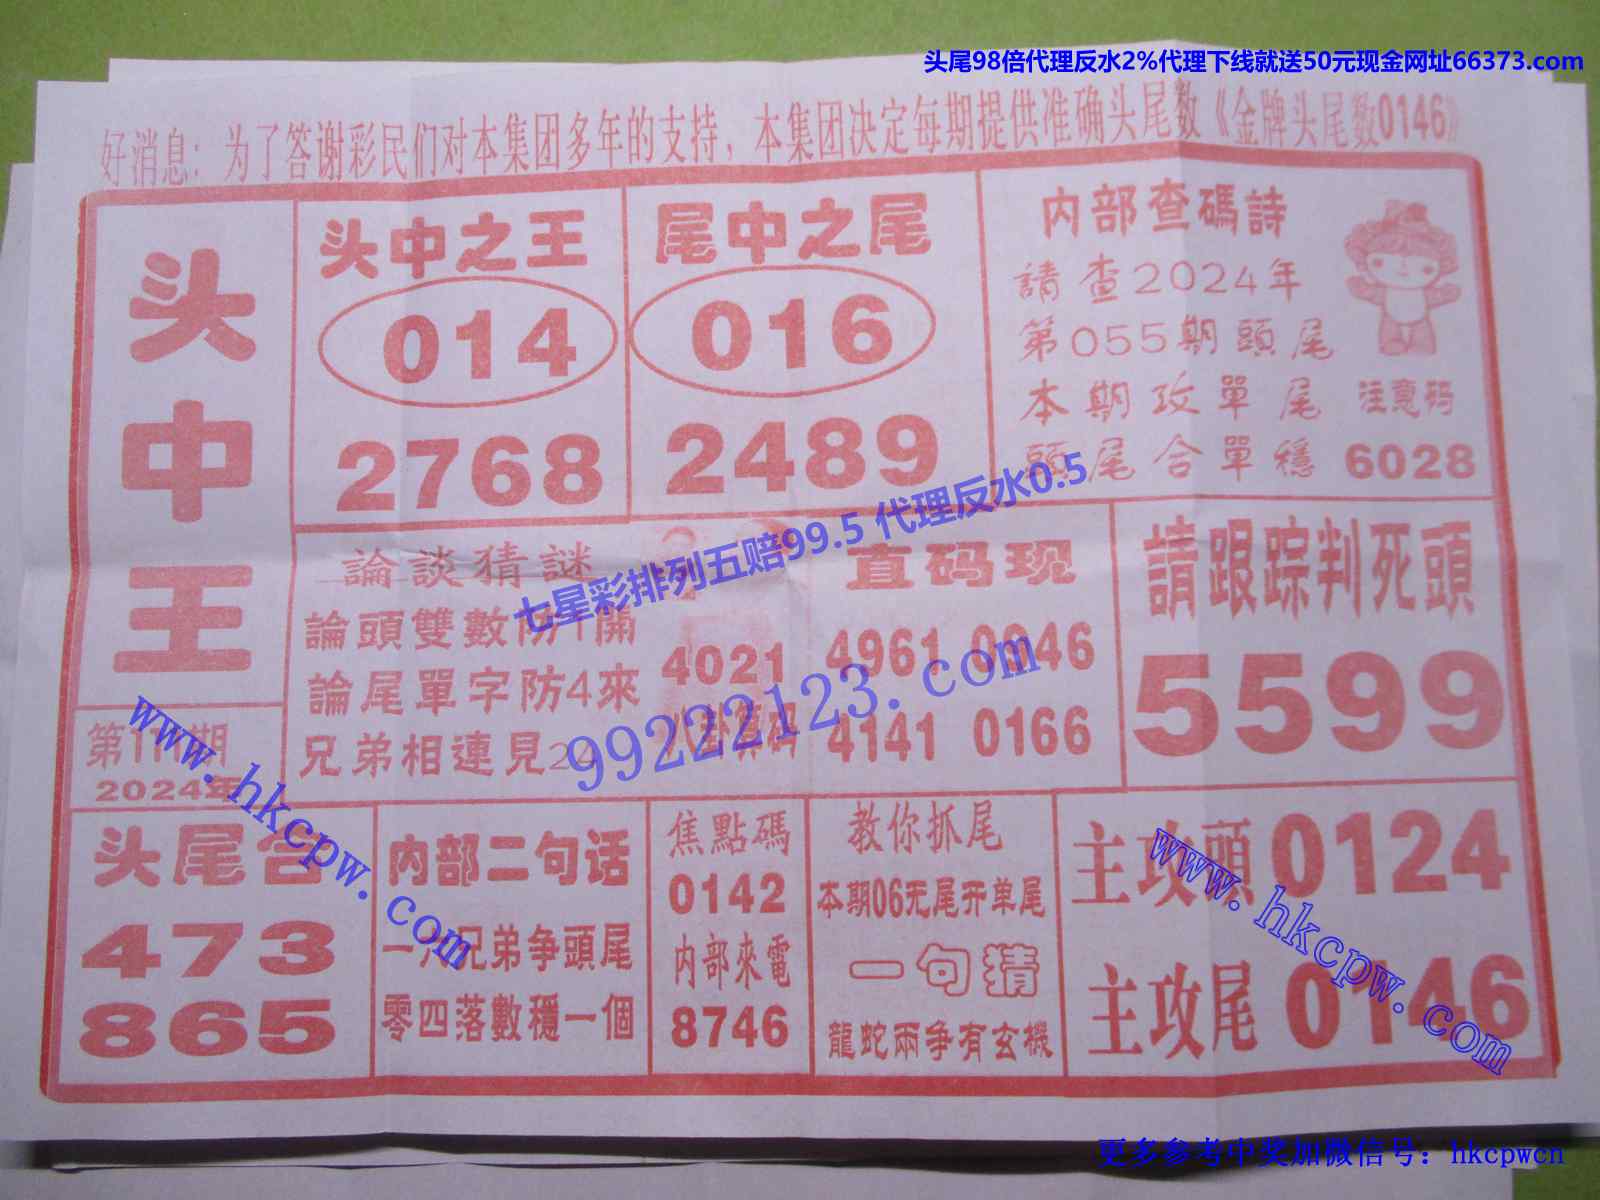 头尾98倍代理反水2%代理下线就送50元现金网址66373.com
好消息：为了答谢彩民们对本集团多年的支持，本集团决定每期提供准确头尾数《金牌头尾数0146》
头中王
第
期
2024年
头中之王
014
2768
尾中之尾
016
2489
内部查碼詩
請查2024年
第055期頭尾
本期攻單尾
頭尾合單穩
注意码
6028
論談猜謎
論頭雙數防1開
論尾單字防4來
兄弟相連見24
4021
八卦算码
直码现
4961 0946
4141 0166
請跟踪判死頭
5599
七星彩排列五赔99.5 代理反水0.5
99222123.com
www.hkcpw.com
头尾合
473
865
内部二句话
一六兄弟争頭尾
零四落數穩一個
焦點碼
0142
内部來電
8746
教你抓尾
本期06无尾开单尾
一句猜
龍蛇兩争有玄機
主攻頭0124
主攻尾0146
www.hkcpw.com
更多参考中奖加微信号：hkcpwcn